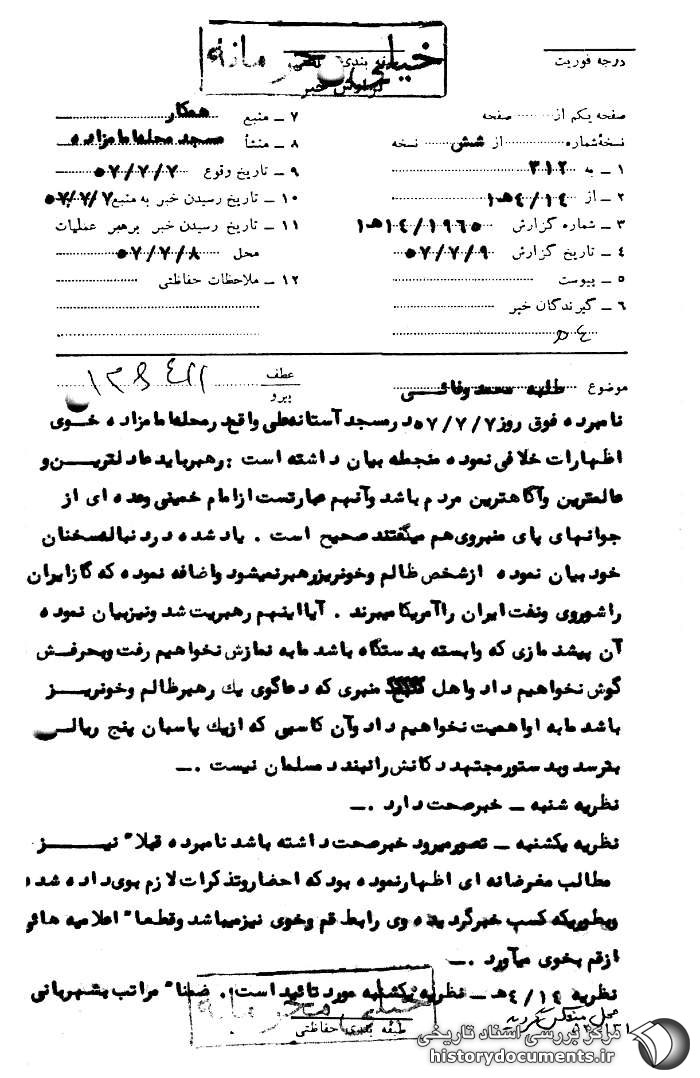 خیلی محرمانه
درجه فوریت
گزارش خبر
صفحه یکم از ........ صفحه
نسخهٔ شماره ........ از شش نسخه
۱ ـ به ۳۱۲
۲ ـ از ۴/۱۴هـ۱
۳ ـ شماره گزارش ۱۴/۱۹۶۵هـ۱
۴ ـ تاریخ گزارش ۵۷/۷/۹
۵ ـ پیوست
۶ ـ گیرندگان خبر
۷ ـ منبع همکار
۸ ـ منشأ مسجد محله امامزاده
۹ ـ تاریخ وقوع ۵۷/۷/۷
۱۰ ـ تاریخ رسیدن خبر به منبع ۵۷/۷/۷
۱۱ ـ تاریخ رسیدن خبر برهبر عملیات
محل ۵۷/۷/۸
۱۲ ـ ملاحظات حفاظتی
موضوع طلبه محمد وفائی
عطف
پیرو
نامبرده فوق روز ۵۷/۷/۷ در مسجد آستانه علی واقع در محله امامزاده خوی
اظهارات خلافی نموده منجمله بیان داشته است : رهبر باید عادلترین و
عالمترین و آگاهترین مردم باشد وآنهم عبارتست از امام خمینی وعده ای از
جوانهای پای منبروی هم میگفتند صحیح است . یاد شده در دنباله سخنان
خود بیان نموده از شخص ظالم و خونریز رهبر نمیشود واضافه نموده که گاز ایران
را شوروی ونفت ایران را آمریکا میبرند . آیا اینهم رهبریت شد ونیز بیان نموده
آن پیشنمازی که وابسته بدستگاه باشد ما به نمازش نخواهیم رفت وبحرفش
گوش نخواهیم داد و اهل منبری که دعاگوی یك رهبر ظالم وخونریز
باشد ما به او اهمیت نخواهیم داد وآن کاسبی که از یك پاسبان پنج ریالی
بترسد وبدستور مجتهد دکانش را نبندد مسلمان نیست .ـ
نظریه شنبه ـ خبر صحت دارد .ـ
نظریه یکشنبه ـ تصور میرود خبر صحت داشته باشد نامبرده قبلاً نیز
مطالب مغرضانه ای اظهار نموده بود که احضار وتذکرات لازم بوی داده شد و
وبطوریکه کسب خبر گردیده وی رابط قم وخوی نیز میباشد وقطعاً اعلامیه هائی
از قم بخوی میآورد .ـ
نظریه ۴/۱۴هـ ـ نظریه یکشنبه مورد تائید است . ضمناً مراتب بشهربانی
محل منعکس گردید
خیلی محرمانه
طبقه بندی حفاظتی
مرکز بررسی اسناد تاریخی
historydocuments.ir